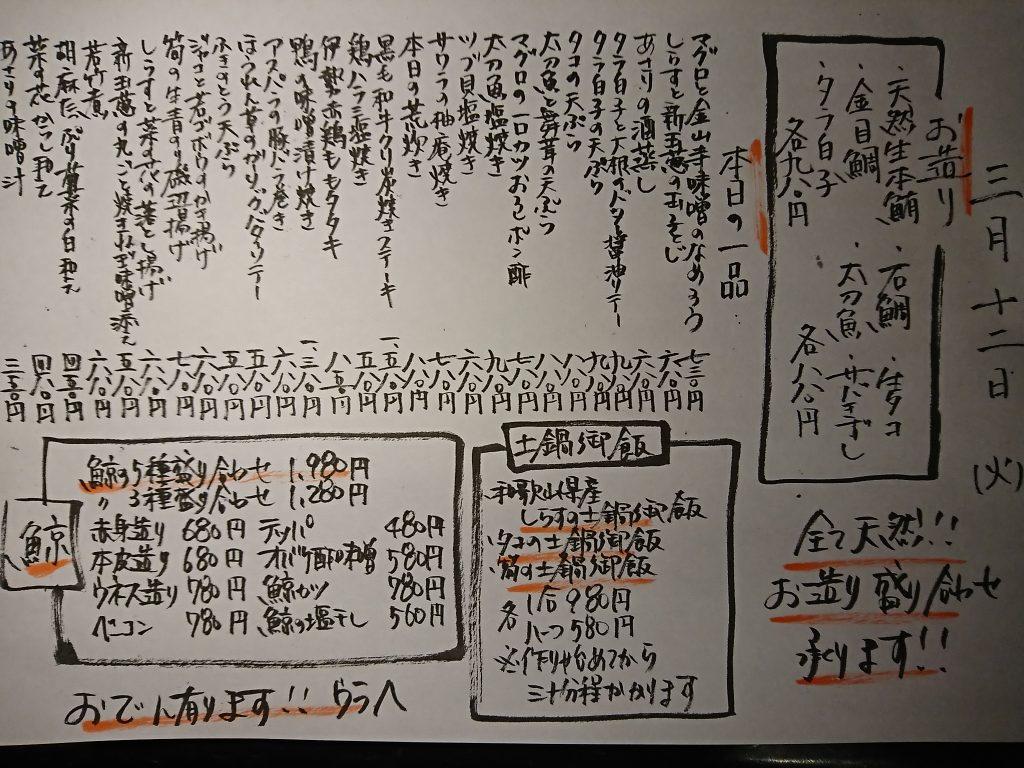 三月十二日(火)
お造り
・天然生本鮪 ・石鯛 ・生タコ
・金目鯛 ・太刀魚 ・サバきずし
・タラ白子
各九八〇円 各八八〇円
全て天然!!
お造り盛り合わせ
承ります!!
本日の一品
マグロと金山寺味噌のなめろう 七三〇円
しらすと新玉葱の玉子とじ 六八〇円
あさりの酒蒸し 六八〇円
タラ白子と大根のバター醤油ソテー 九八〇円
タラ白子の天ぷら 九八〇円
タコの天ぷら 八八〇円
太刀魚と舞茸の天ぷら 八八〇円
マグロの一口カツおろしポン酢 七八〇円
太刀魚塩焼き 九八〇円
ツブ貝塩焼き 六八〇円
サワラの柚庵焼き 七八〇円
本日の荒炊き 五八〇円
黒毛和牛クリ炭焼きステーキ 一、五八〇円
鶏ハラミ塩焼き 五八〇円
伊勢赤鶏ももタタキ 八五〇円
鴨の味噌漬け焼き 一、三八〇円
アスパラの豚バラ巻き 六八〇円
ほうれん草のガーリックバターソテー 五八〇円
ふきのとう天ぷら 五八〇円
ジャコと若ゴボウのかき揚げ 六八〇円
筍の生青のり磯辺揚げ 七八〇円
しらすと菜の花の落とし揚げ 六八〇円
新玉葱の丸ごと焼きねぎ味噌添え 五八〇円
若竹煮 六八〇円
胡麻だれ 菜の白和え 四五〇円
菜の花からし和え 四八〇円
あさりの味噌汁 三五〇円
土鍋御飯
和歌山県産
しらすの土鍋御飯
・タコの土鍋御飯
・筍の土鍋御飯
各 1合980円
ハーフ580円
※作り始めてから
三十分程かかります
鯨
鯨の5種盛り合わせ 1,980円
〃 3種盛り合わせ 1,280円
赤身造り 680円 テッパ 480円
本皮造り 680円 オバケ酢味噌 580円
ウネス造り 780円 鯨カツ 780円
ベーコン 780円 鯨の塩干し 560円
おでん有ります!! ウラへ